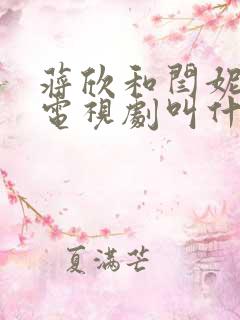 蔣欣和閆妮
電視劇叫什
夏滿芒